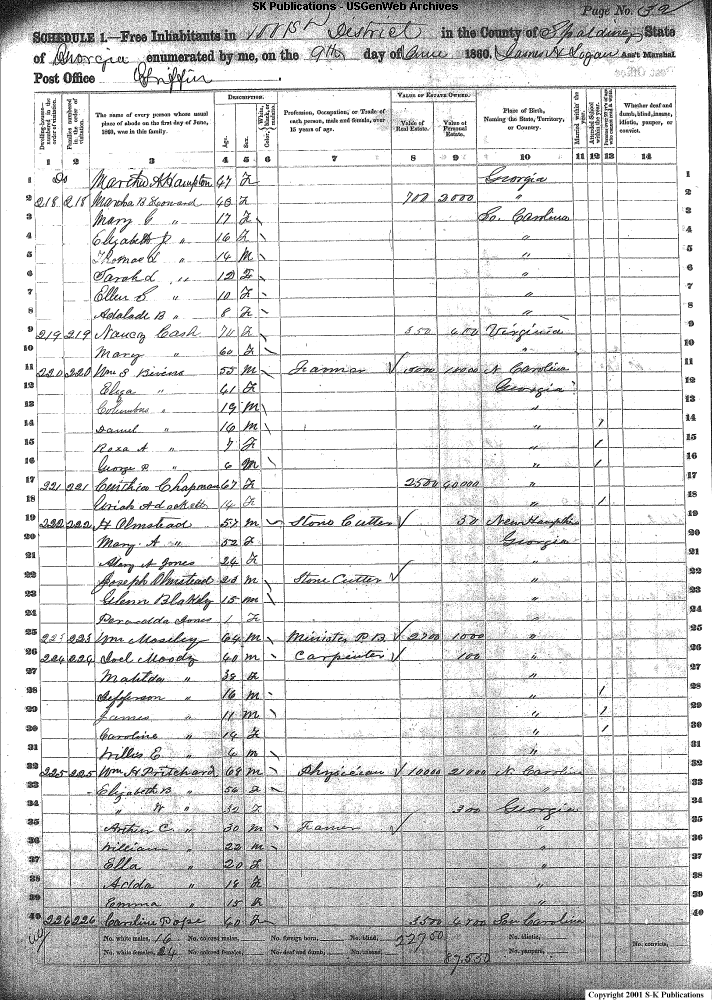 SK Publications - USGenWeb Archives
Page No. 32
SCHEDULE 1.—Free Inhabitants in 1001st District in the County of Spalding State
of Georgia enumerated by me, on the 9th day of June 1860. James H Logan Ass't Marshal.
Post Office Griffin
Dwelling-houses—numbered in the order of visitation.
Families numbered in the order of visitation.
The name of every person whose usual place of abode on the first day of June, 1860, was in this family.
DESCRIPTION.
Age.
Sex.
Color, White, black, or mulatto.
Profession, Occupation, or Trade of each person, male and female, over 15 years of age.
VALUE OF ESTATE OWNED.
Value of Real Estate.
Value of Personal Estate.
Place of Birth, Naming the State, Territory, or Country.
Married within the year.
Attended School within the year.
Whether deaf and dumb, blind, insane, idiotic, pauper, or convict.
1 2 3 4 5 6 7 8 9 10 11 12 13 14
1 Hampton 47 F Georgia 1
2 218 218 Martha B 43 F 700 2000 " 2
3 Mary C " 17 F So. Carolina 3
4 Elizabeth J " 16 F " 4
5 Thomas " 14 M " 5
6 Sarah L " 12 F " 6
7 Ellen C " 10 F " 7
8 Adalade B " 8 F " 8
9 219 219 Nancy Cash F Virginia 9
10 Mary " 60 F " 10
11 220 220 Wm S Bivins 55 M Farmer N Carolina 11
12 Eliza " 41 F Georgia 12
13 Columbus " 19 M " 13
14 Daniel " 16 M " 1 14
15 Roxa A " 7 F " 1 15
16 George R " 6 M " 1 16
17 221 221 Chapman 67 F 2500 40000 " 17
18 14 F " 1 18
19 222 222 H Olmstead 57 M Stone Cutter 50 New Hampshire 19
20 Mary A " 52 F Georgia 20
21 Mary A Jones 24 F " 21
22 Joseph Olmstead 23 M Stone Cutter " 22
23 Glenn Blakely 15 M " 23
24 Jones 1 F " 24
25 223 223 Wm Moseley 64 M Minister P. B. 2700 1000 " 25
26 224 224 Joel Moody 40 M Carpenter 100 " 26
27 Matilda " 38 F " 27
28 Jefferson " 16 M " 1 28
29 James " 11 M " 1 29
30 Caroline " 14 F " 1 30
31 Willis E " 4 M " 31
32 225 225 Wm H Pritchard 68 M Physician 10000 21000 N. Carolina 32
33 Elizabeth B " 56 F " 33
34 " W " 32 F 300 Georgia 34
35 Arthur C " 30 M Farmer " 35
36 William " 22 M " 36
37 Ella " 20 F " 37
38 Adda " 18 F " 38
39 Emma " 15 F " 39
40 226 226 Caroline Pope 60 F 3500 Sou Carolina 40
No. white males, 16 No. colored males, No. foreign born, No. blind, 22750 No. idiotic, No. convicts,
No. white females, 24 No. colored females, No. deaf and dumb, No. insane, 87,550 No. paupers,
Copyright 2001 S-K Publications